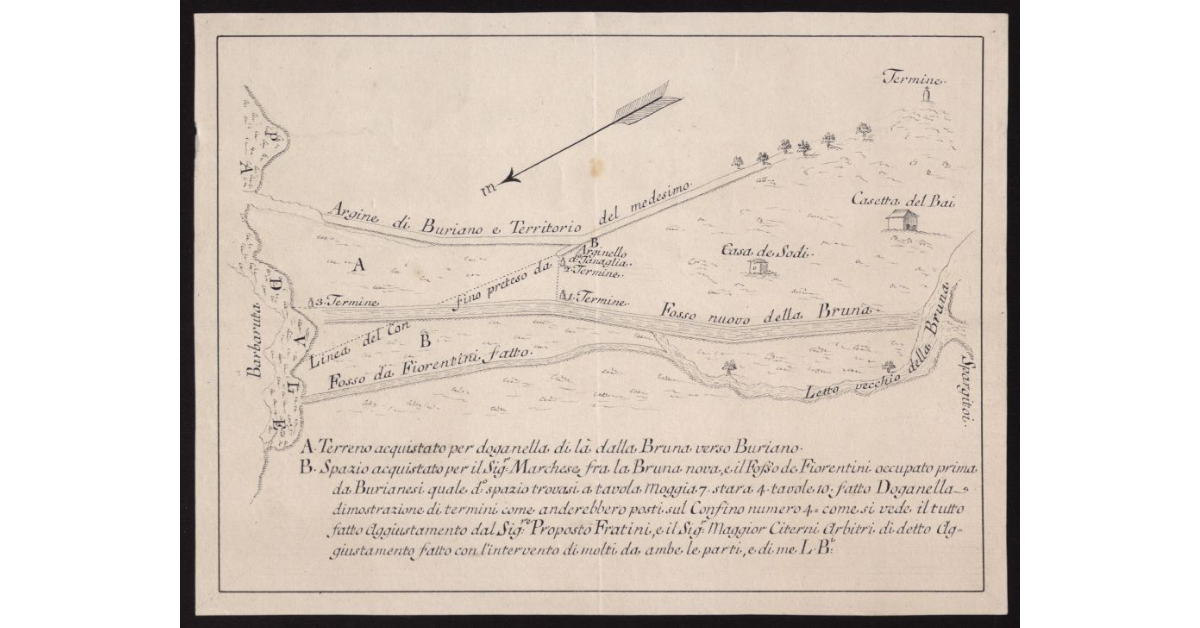 Termine.
PADVLE
m
Casetta del Bai.
Argine di Buriano e Territorio del medesimo
B
Arginello
d.ª Tanaglia.
2. Termine.
Casa de Sodi.
A
3. Termine
1. Termine.
Fosso nuovo della Bruna.
Linea del Con fino preteso da
B
Barbaruta
Fosso da Fiorentini fatto.
Letto vecchio della Bruna
Spargitoi.
A. Terreno acquistato per doganella di là dalla Bruna verso Buriano.
B. Spazio acquistato per il Sig.ʳ Marchese, fra la Bruna nova, e il Fosso de Fiorentini occupato prima
da Burianesi quale d.º spazio trovasi a tavola Moggia 7. stara 4. tavole 10. fatto Doganella
dimostrazione di termini come anderebbero posti sul Confino numero 4. come si vede il tutto
fatto Aggiustamento dal Sig.ʳᵉ Proposto Fratini, e il Sig.ʳ Maggior Citerni Arbitri di detto Ag-
giustamento fatto con l'intervento di molti da ambe le parti, e di me L. B.